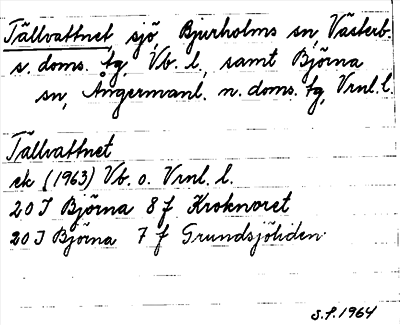 Tällvattnet sjö Bjurholms sn, Västerb.
s. doms. tg, Vb. l., samt Björna
sn, Ångermanl. n. doms. tg, Vrnl. l.
Tällvattnet
ek (1963) Vb. o. Vrnl. l.
20 I Björna 8 f Kroknoret
20 I Björna 7 f Grundsjöliden
S.F. 1964